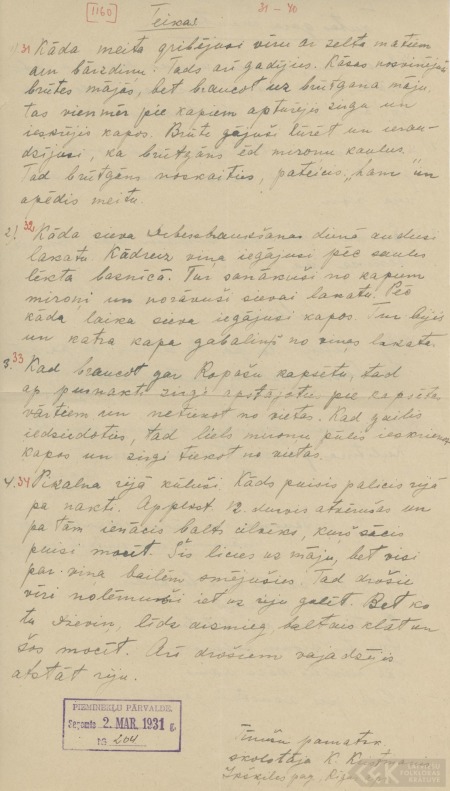 1160
31-40
Teikas
1) 31 Kāda meita gribējusi vīru ar zelta matiem
arī bārzdiņu. Tāds arī gadījies. Kāzas nosvinējuši
brūtes mājās, bet braucot uz brūtgana māju,
tas vienmēr pie kapiem apturējis zirgu un
ieskrējis kapos. Brūte gājusi lūrēt un ierau-
dzījusi, ka brūtgāns ēd mironu kaulus.
Tad brūtgāns noskaities, pateicis "ham" un
apēdis meitu.
2) 32 Kāda sieva debesbraukšanas dienā audusi
lakatu. Kādreiz viņa iegājusi pēc saules
lēkta baznīcā. Tur sanākuši no kapiem
mironi un nosāvuši sievai lakatu. Pēc
kāda laika sieva iegājusi kapos. Tur bijis
un katra kapa gabaliņš no viņas lakata.
3. 33 Kad braucot gar Ropažu kapsētu, tad
ap pusnakti zirgi apstājotu pie kapsētas
vārtiem un netiekot no vietas. Kad gailis
iedziedoties, tad liels mironu pūlis ieskrienot
kapos un zirgi tiekot no vietas.
4. 34 Pikalna rijā kūluši. Kāds puisis palicis rijā
pa nakti. Applkst. 12. durvis atvērušās un
pa tām ienācis balts cilvēks, kurš sācis
puisi mocīt. Šis licies uz māju, bet visi
par viņa bailēm smējušies. Tad drošie
vīri nolēmuši iet uz riju gulēt. Bet ko
tu dieviņ, līdz aizmieg baltais klāt un
šos mocīt. Arī drošiem vajadzējis
atstāt riju.
PIEMINEKĻU PĀRVALDE.
Saņemts 2. MAR. 1931 g.
№ 204
skolotāja K.
Ikšķiles pag.
LATVIEŠU
FOLKLORAS
KRĀTUVE